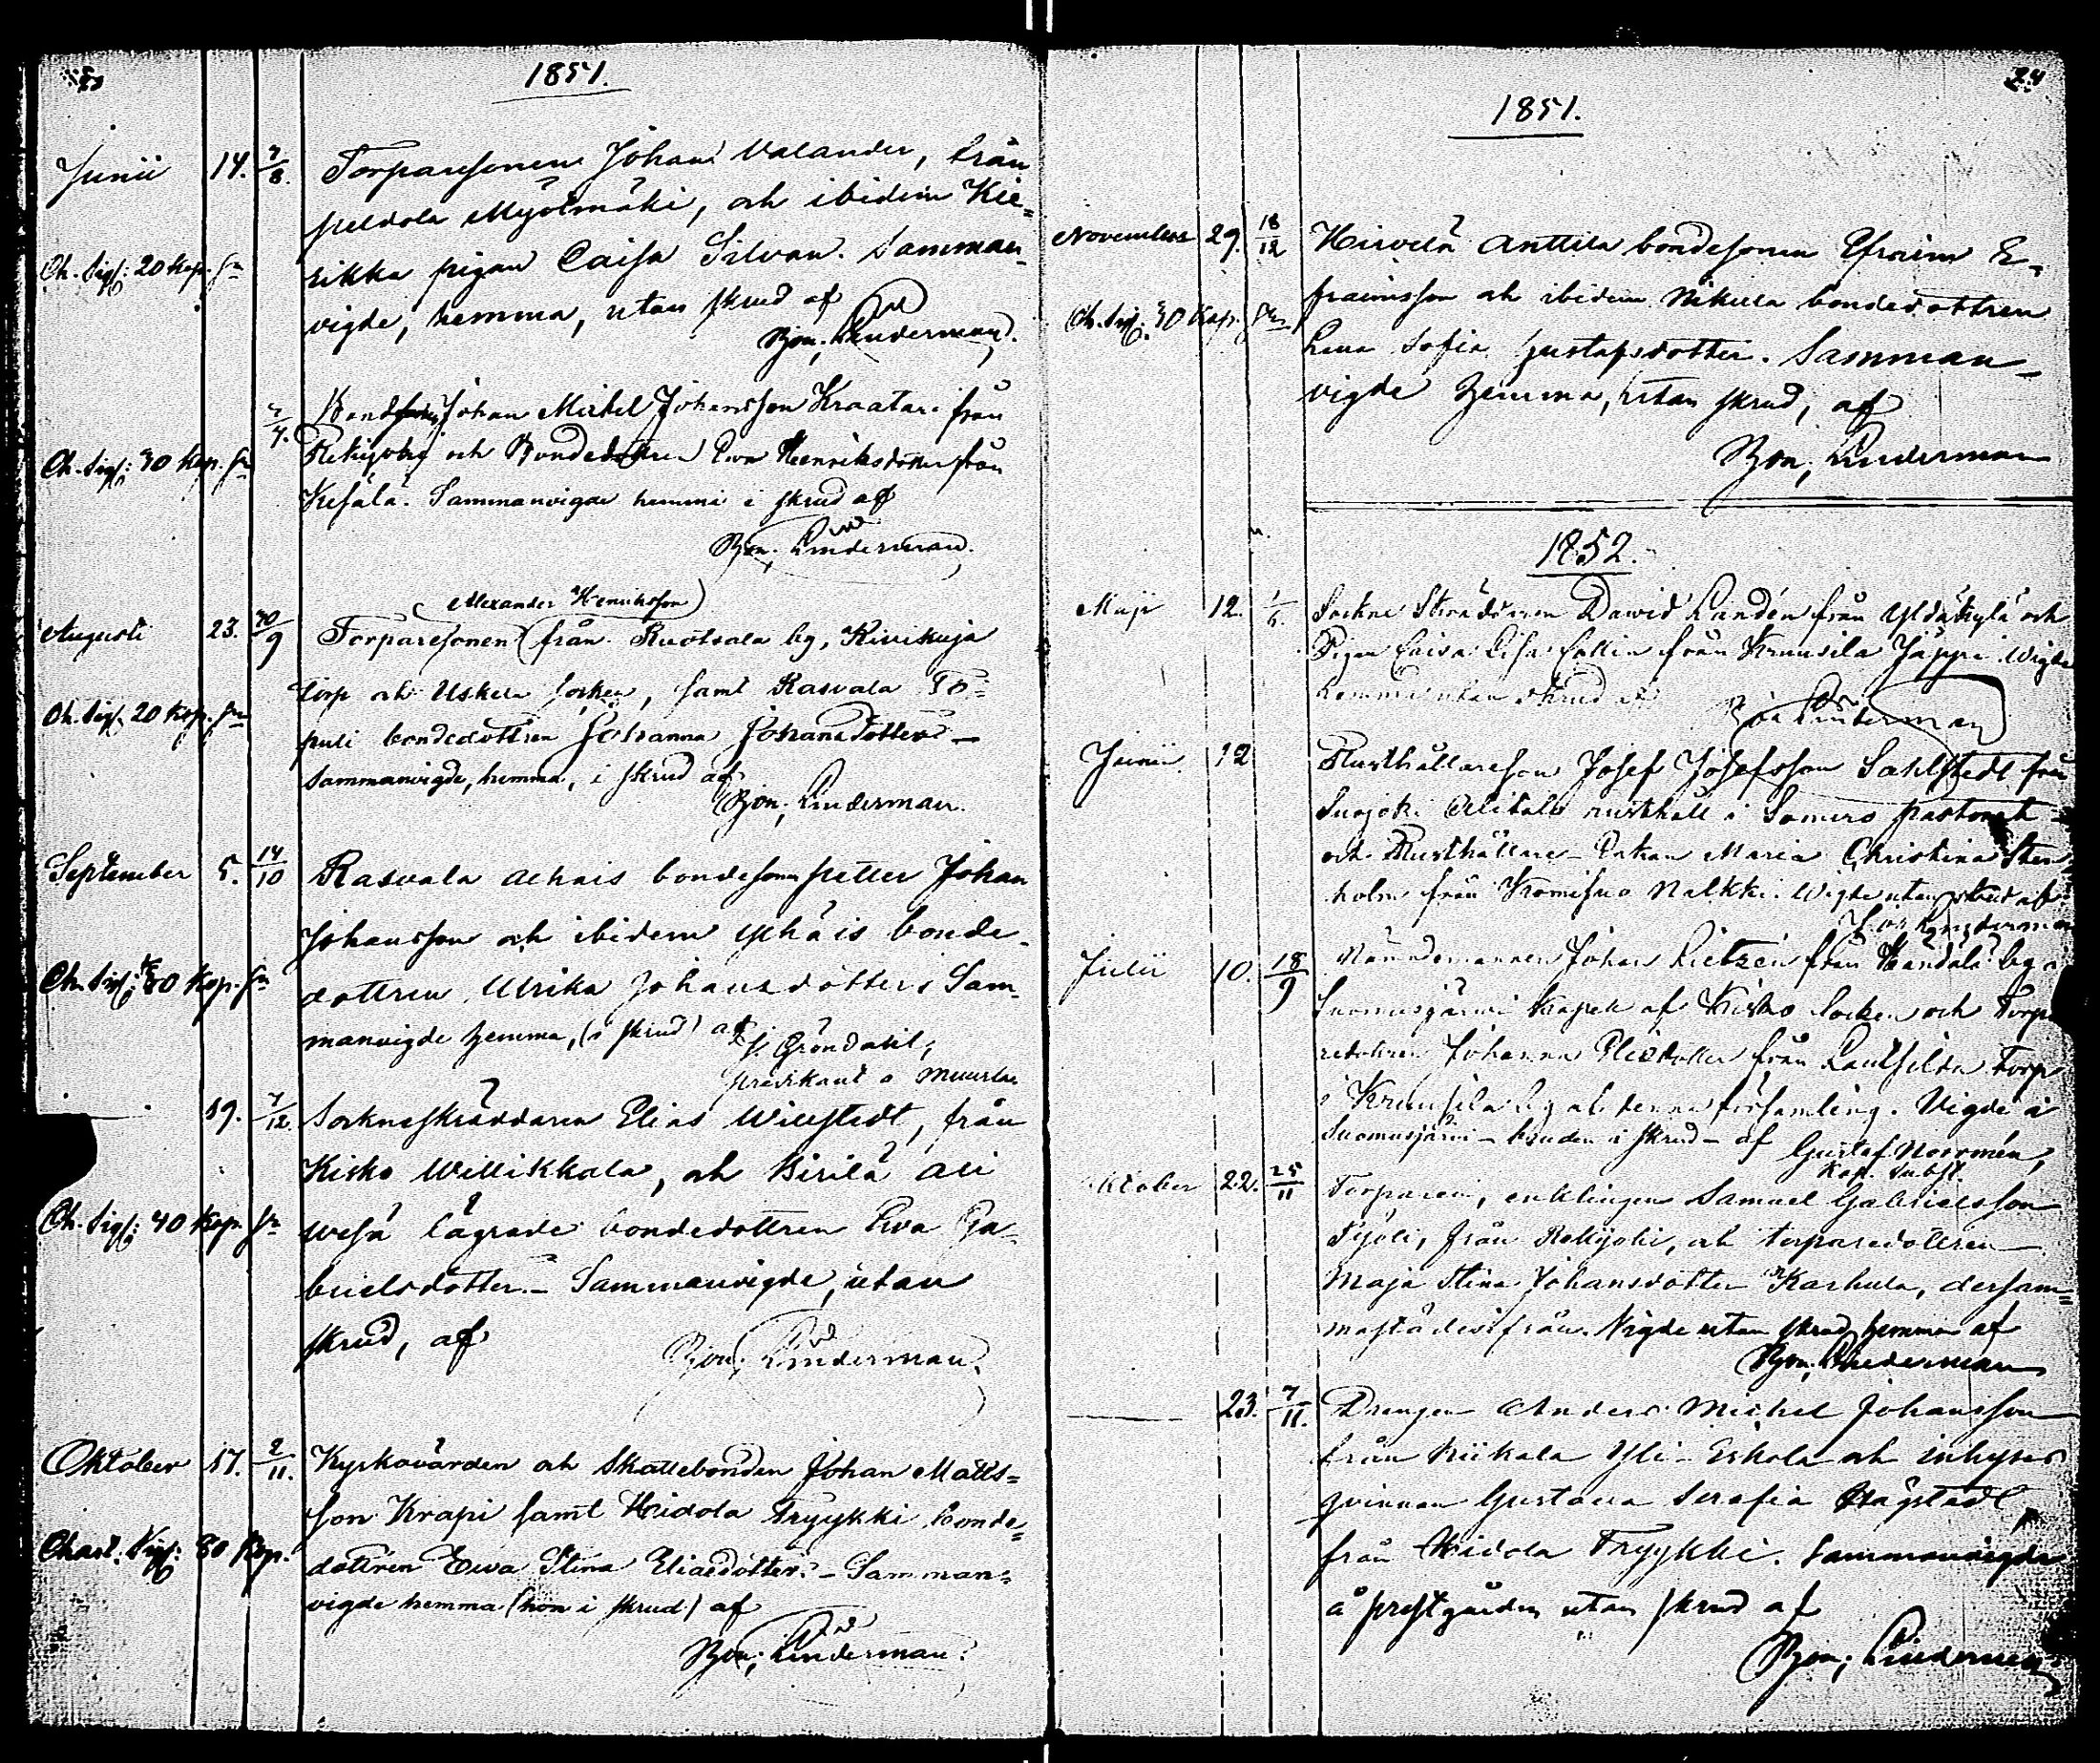 23
1851.
Junii 14. 7/8. Torparesonen Johan Valander, från
peldola Myötmäki, och ibidem Kie-
Ch. Sigs: 20 Kop. Sr rikka pigan Caisa Silvan. Samman-
vigde, hemma, utan skrud af
Bon; Linderman.
7/4. Johan Michel Johansson Kraatari från
Rekijoki och Bondedottren Eva Henriksdotter från
Ch. Sigs: 30 Kop. Sr
Kesälä. Sammanvigde hemma i skrud af
Bon; Linderman.
(Alexander Henriksson)
Augusti 23. 30/9 Torparesonen från Ruotsala by, Kivikuja
torp och Uskela socken, samt Rasvala To-
Ch. Sigs: 20 Kop. Sr
puli bondedottren Johanna Johansdotter —
Sammanvigde, hemma, i skrud af
Bon; Linderman.
September 5. 14/10 Rasvala Alhais bondesonen petter Johan
Johansson och ibidem Yhäis bonde-
Ch. Sigs: 30 Kop. Sr dottren Ulrika Johansdotter. Sam-
manvigde hemma, (i skrud) af
J. Gröndahl,
predikant i Muurla
19. 7/12. Sockneskräddaren Elias Willstedt, från
Kisko Willikkala, och Kirilä Ali
Ch. Sigs: 40 Kop. Sr wesa lägrade bondedottren Eva Ga-
brielsdotter. – Sammanvigde, utan
skrud, af
Bon; Linderman.
Oktober 17. 2/11. Kyrkovärden och Skattebonden Johan Matts-
son Krapi samt Hidola Tryykki bonde-
Chart. Sigs: 80 Kop.
dottren Ewa Stina Eliaedotter. – Samman-
vigde hemma (hon i skrud) af
Bon; Linderman.
24
1851.
November 29. 18/12 Hirvelä Anttila bondesonen Efraim E-
Ch. Sigs: 30 Kop. Sr. fraimsson och ibidem Nikula bondedottren
Lena Sofia Gustafsdotter. Samman-
vigde hemma, utan skrud, af
Bon; Linderman
1852.
Maji 12. Dawid Landén från Yldäkylä och
Pigan Caisa Lisa Callin från Kruusila Jäppi. Wigde
hemma utan skrud af
Linderman
Junii 12 Rusthållareson Josef Josefsson Sahlstedt från
Suojoki Alitalo rusthåll i Somero pastorat
och Rusthållare-Enkan Maria Christina Sten
holm från Kromisuo Nalkki. Wigde utan skrud af
Linderman
Julii 10. 18/9 Nämndemannen Johan Lietzén från Händälä by i
Suomusjärvi kapell af Kisko Socken och Torpa
redottren Johanna Elisdotter från Rautsilda Torp
i Kruusila by af denna församling. Vigde i
Suomusjärvi – bruden i skrud – af Gustaf Norrmén,
Kap. Subst.
Oktober 22. 25/11 Torparen, enklingen Samuel Gabrielsson
Syöli, från Rekijoki, och torparedottren
Maja Stina Johansdotter Karhula, dersam-
mastädesifrån. Vigde utan skrud hemma af
Bon; Linderman
23. 7/11. Drengen Anders Michel Johansson
från Kiikala Yli-Eskola och inhyses
qvinnan Gustava Serafia Hägstedt
från Hidola Tryykki. Sammanvigde
å prestgården utan skrud af
Bon; Linderman